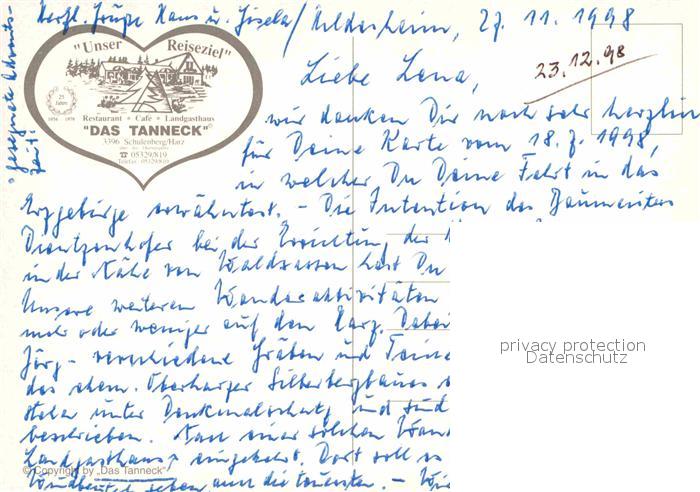 Herzl. Grüße Hans u. Gisela / Hildesheim, 27. 11. 1998
gesegnete Advents-
zeit!
"Unser Reiseziel"
25 Jahre
Restaurant • Cafe • Landgasthaus
"DAS TANNECK"
3396 Schulenberg/Harz
☎ 05329/819
Telefax 05329/819
23.12.98
Liebe Lena,
wir danken Dir noch sehr herzlich
für Deine Karte vom 18.7.1998,
in welcher Du Deine Fahrt in das
Erzgebirge erwähntest. – Die Intention des Baumeisters
Dientzenhofer bei der Errichtung der
in der Nähe von Waldsassen hast Du
Unsere weiteren Wanderaktivitäten
mehr oder weniger auf den Harz. Dabei
verschiedene Gräben und Teiche
des ehem. Oberharzer Silberbergbaues
stehen unter Denkmalschutz und sind
beschrieben. Nach einer solchen
Landgasthaus eingekehrt. Dort soll es
Windbeutel geben
privacy protection
Datenschutz
© Copyright by „Das Tanneck"